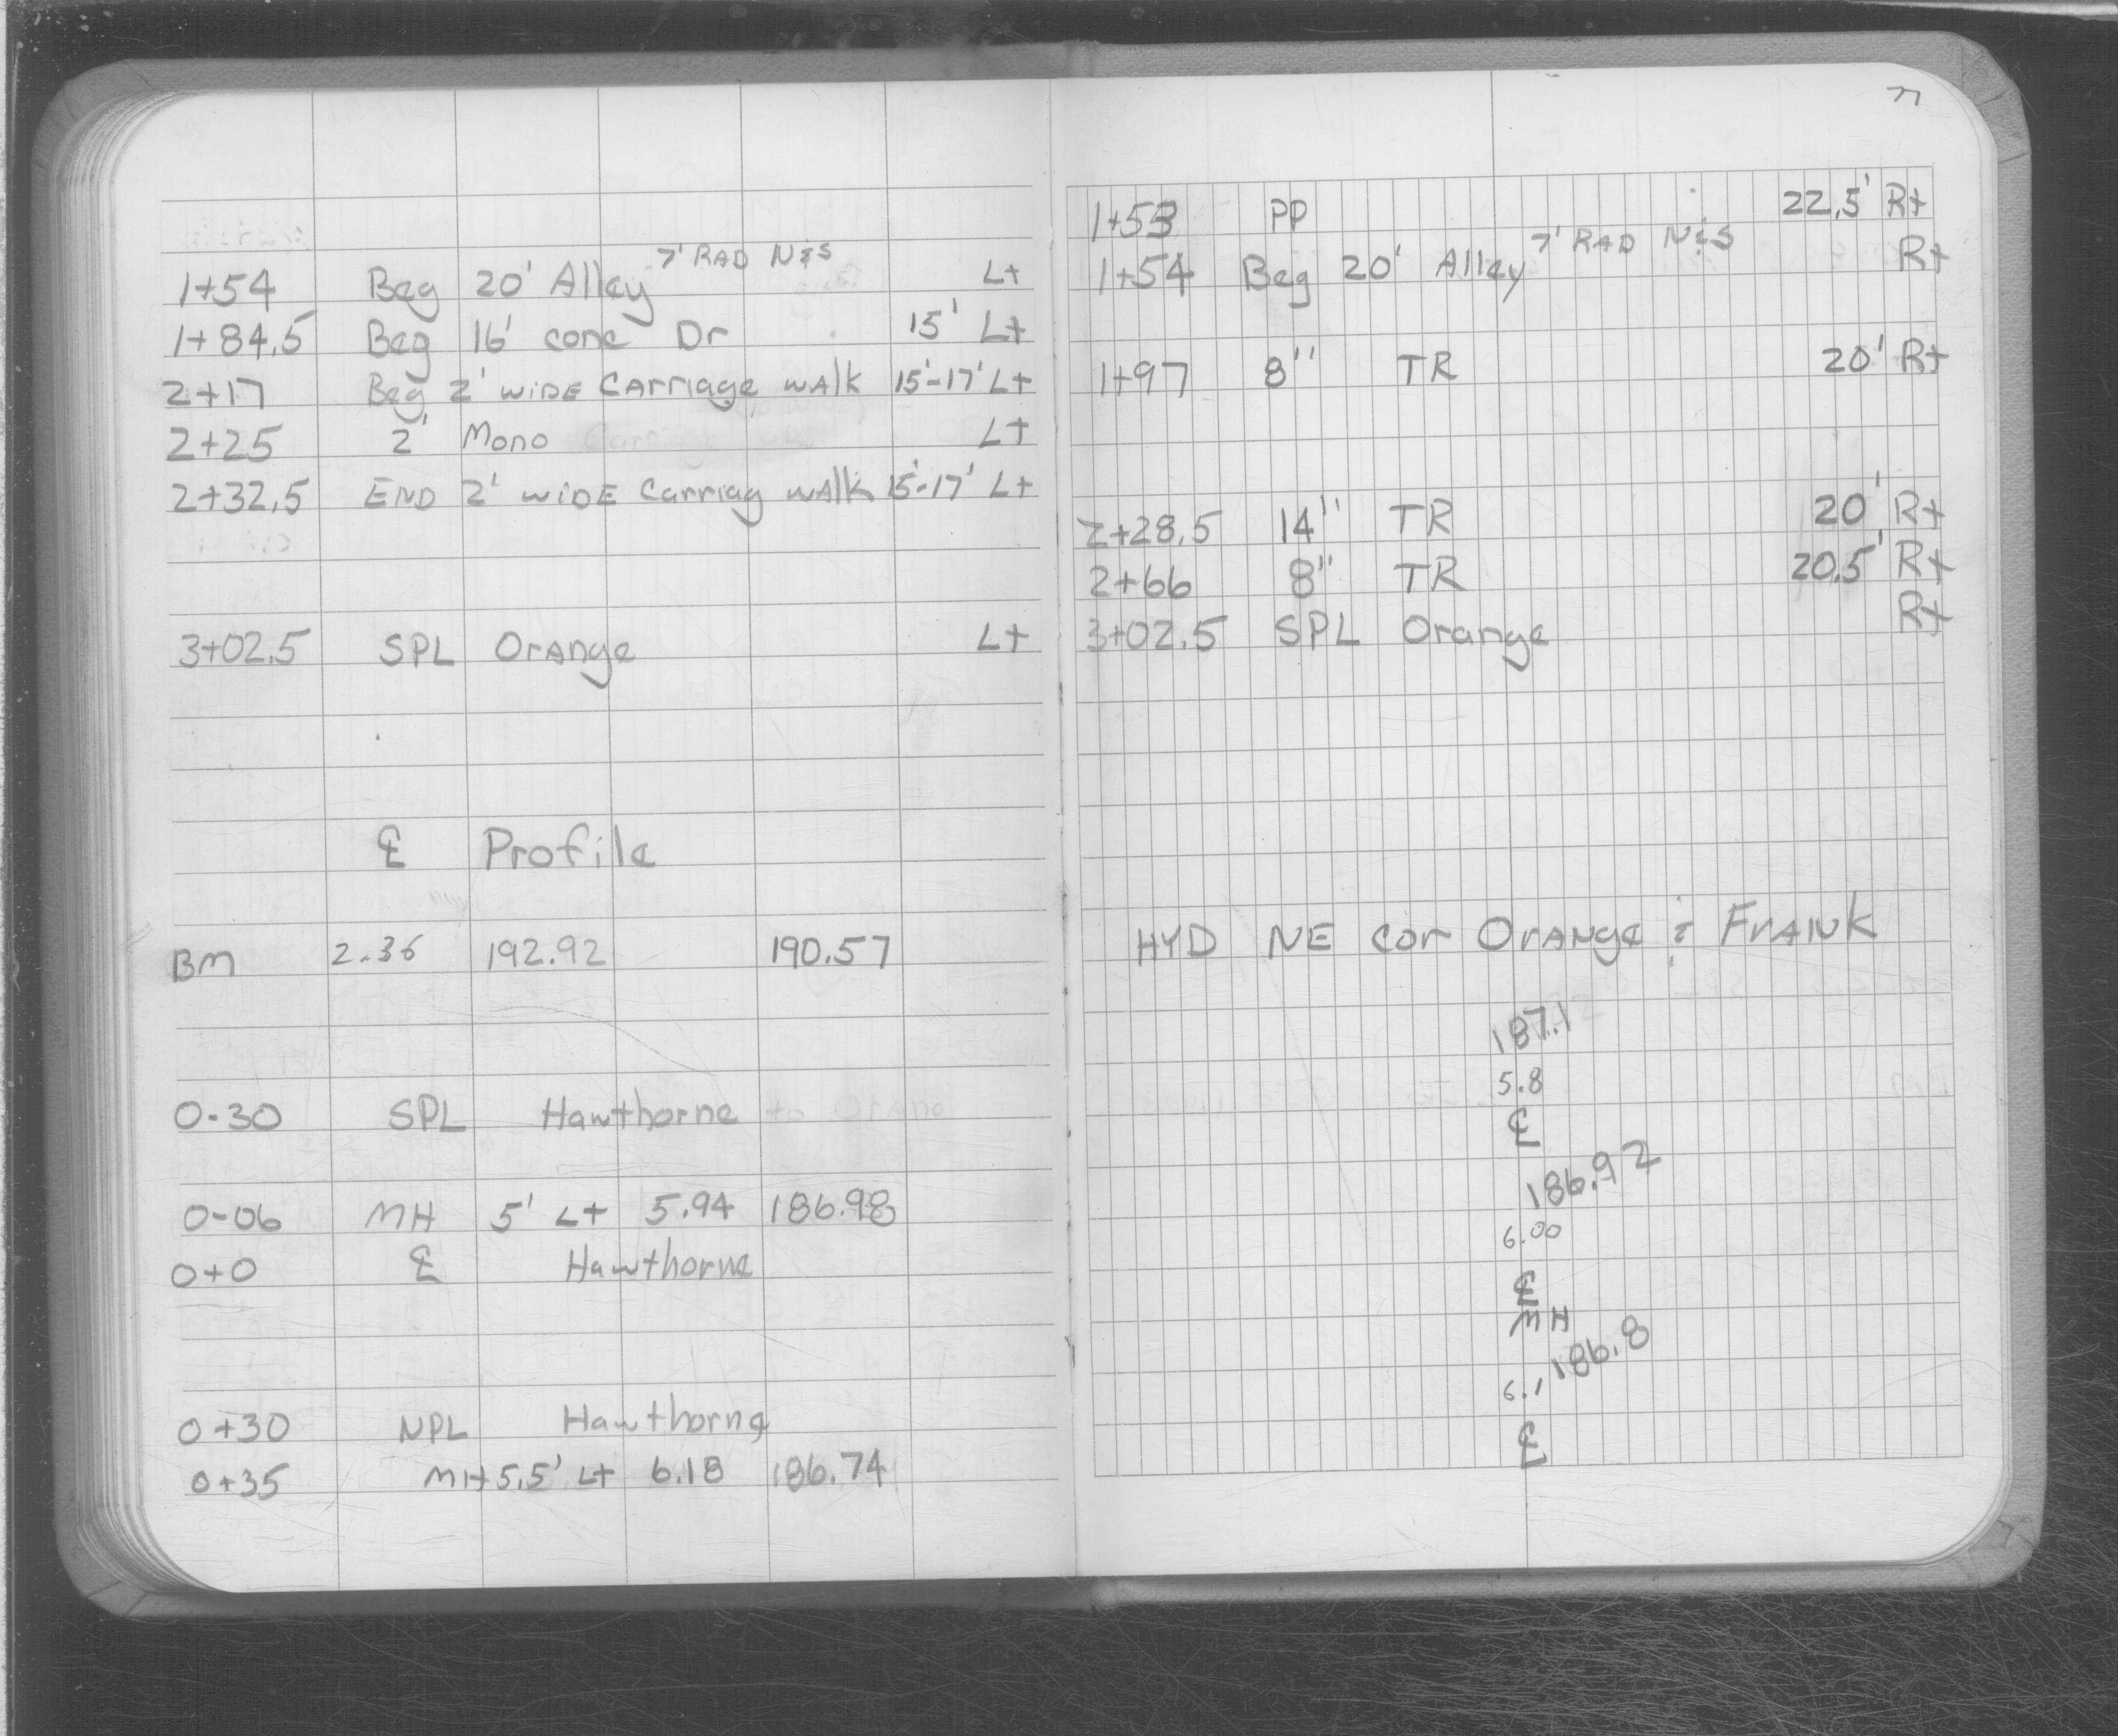 1+54 Beg 20' Alley 7' RAD N&S Lt
1+84.5 Beg 16' conc Dr 15' Lt
2+17 Beg 2' WIDE CARRIAGE WALK 15'-17' Lt
2+25 2' Mono Lt
2+32.5 END 2' WIDE Carriag WALK 15'-17' Lt
3+02.5 SPL Orange Lt
℄ Profile
BM 2.36 192.92 190.57
0-30 SPL Hawthorne
0-06 MH 5' Lt 5.94 186.98
0+0 ℄ Hawthorne
0+30 NPL Hawthorne
0+35 MH 5.5' Lt 6.18 186.74
1+53 PP 22.5' Rt
1+54 Beg 20' Alley 7' RAD N&S Rt
1+97 8" TR 20' Rt
2+28.5 14" TR 20' Rt
2+66 8" TR 20.5' Rt
3+02.5 SPL Orange Rt
HYD NE cor Orange & FRANK
187.1
5.8
℄
186.92
6.00
℄
MH
186.8
6.1
℄